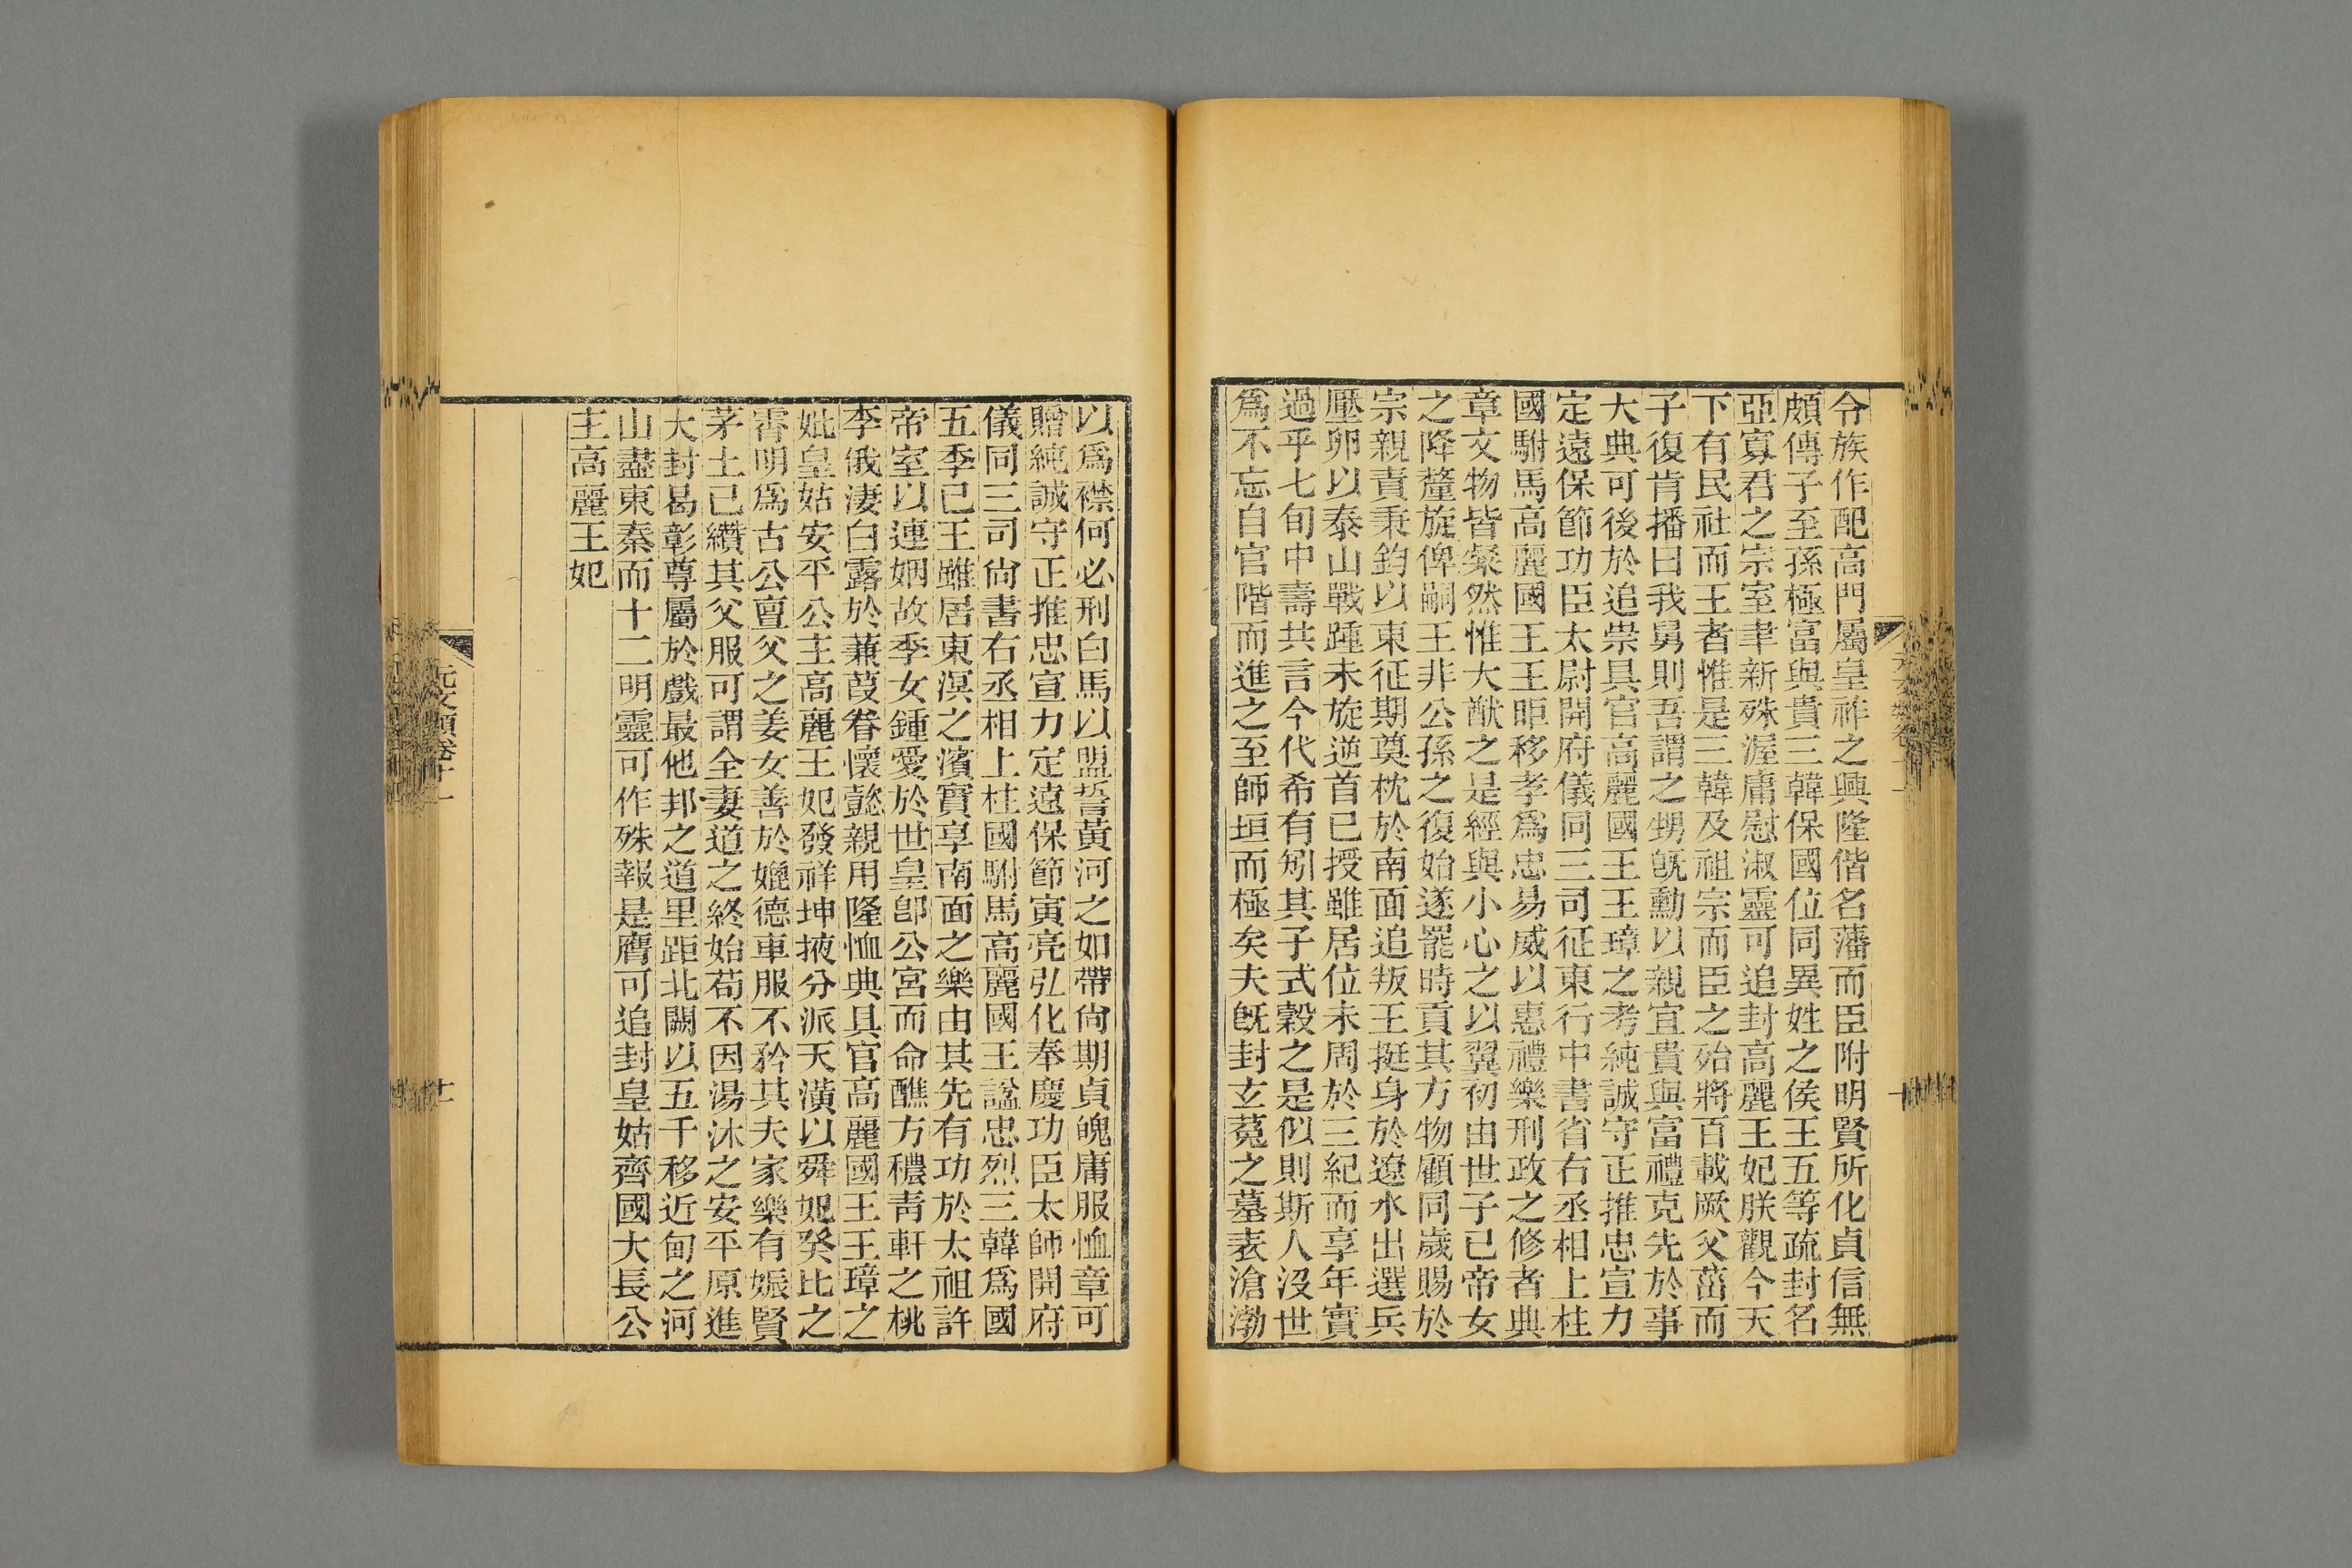 令族作配高門屬皇祚之興隆偕名藩而臣附明賢所化貞信無
頗傳子至孫極富與貴三韓保國位同異姓之侯王五等疏封名
亞寡君之宗室聿新殊渥庸慰淑靈可追封高麗王妃朕觀今天
下有民社而王者惟是三韓及祖宗而臣之殆將百載厥父菑而
子復肯播曰我舅則吾謂之甥旣勳以親宜貴與富禮克先於事
大典可後於追崇具官高麗國王王璋之考純誠守正推忠宣力
定遠保節功臣太尉開府儀同三司征東行中書省右丞相上柱
國駙馬高麗國王王昛移孝爲忠易威以惠禮樂刑政之修者典
章文物皆粲然惟大猷之是經與小心之以翼初由世子已帝女
之降釐旋俾嗣王非公孫之復始遂罷時貢其方物顧同歲賜於
宗親責秉鈞以東征期奠枕於南面追叛王挺身於遼水出選兵
壓卵以泰山戰踵未旋逆首已授雖居位未周於三紀而享年實
過乎七旬中壽共言今代希有矧其子式穀之是似則斯人沒世
爲不忘自官階而進之至師垣而極矣夫旣封玄菟之墓表滄渤
以爲襟何必刑白馬以盟誓黃河之如帶尙期貞魄庸服恤章可
贈純誠守正推忠宣力定遠保節寅亮弘化奉慶功臣太師開府
儀同三司尙書右丞相上柱國駙馬高麗國王諡忠烈三韓爲國
五季已王雖居東溟之濱實享南面之樂由其先有功於太祖許
帝室以連姻故季女鍾愛於世皇卽公宮而命醮方穠靑軒之桃
李俄淒白露於蒹葭眷懷懿親用隆恤典具官高麗國王王璋之
妣皇姑安平公主高麗王妃發祥坤掖分派天潢以舜妃癸比之
霄明爲古公亶父之姜女善於媲德車服不矜其夫家樂有娠賢
茅土已纘其父服可謂全妻道之終始苟不因湯沐之安平原進
大封曷彰尊屬於戲最他邦之道里距北闕以五千移近甸之河
山盡東秦而十二明靈可作殊報是膺可追封皇姑齊國大長公
主高麗王妃
元文類卷十一
十一